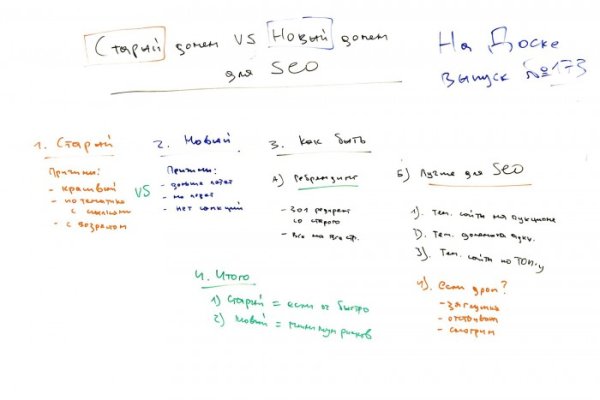 Старый домен VS Новый домен
для SEO
На Доске
выпуск №173
1. Старый
Причины:
- красивый
- по тематике
с ссылками
- с возрастом
VS
2. Новый
Причины:
- дольше
- не
- нет санкций
3. Как быть
А) Ребрендинг
- 301 редирект
со старого
- Все на все стр.
Б) Лучше для SEO
1). Тем. сайты на аукционе
2). Тем. домены аукц.
3). Тем. сайты по ТОП-у
4). если дроп?
- заглушка
- отстаивать
- смотрим
4. Итого
1) Старый = если оч быстро
2) Новый = минимум рисков